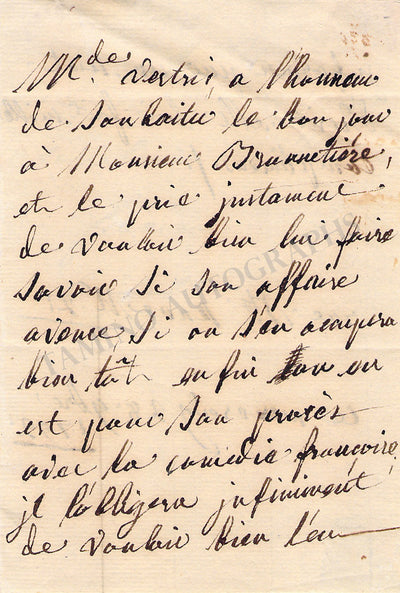 Mde Vestris, a l'honneur
de Souhaiter le bon jour
à Monsieur Brunnetiére,
et le prie justament
de vouloir bien lui faire
savoir Si son affaire
avence, Si on S'en occupera
bien tôt en fin on en
est pour Son procès
avec la comedie françoise
il l'obligera infiniment
de vouloir bien l'en
TAMINO AUTOGRAPHS